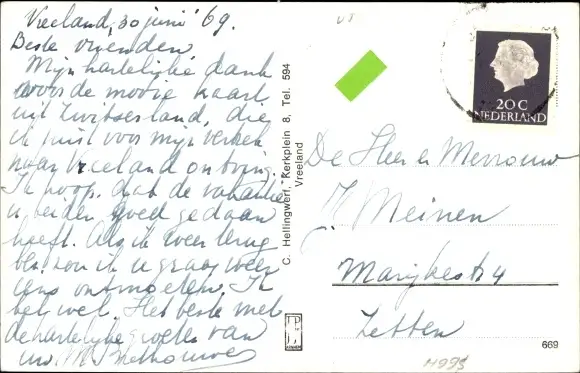 Vreeland, 30 juni '69.
Beste vrienden
Mijn hartelijke dank
voor de mooie kaart
uit Zwitserland, die
ik juist voor mijn vertrek
naar Vreeland ontving.
Ik hoop, dat de vakantie
u beiden goed gedaan
heeft. Als ik weer terug
ben, zou ik u graag weer
eens ontmoeten. Ik
bel wel. Het beste met
de hartelijke groeten van
uw M.
C. Hellingwerf, Kerkplein 8, Tel. 594
Vreeland
20 C
NEDERLAND
De Heer en Mevrouw
J. Meinen
Marijkestr 4
Zetten
669